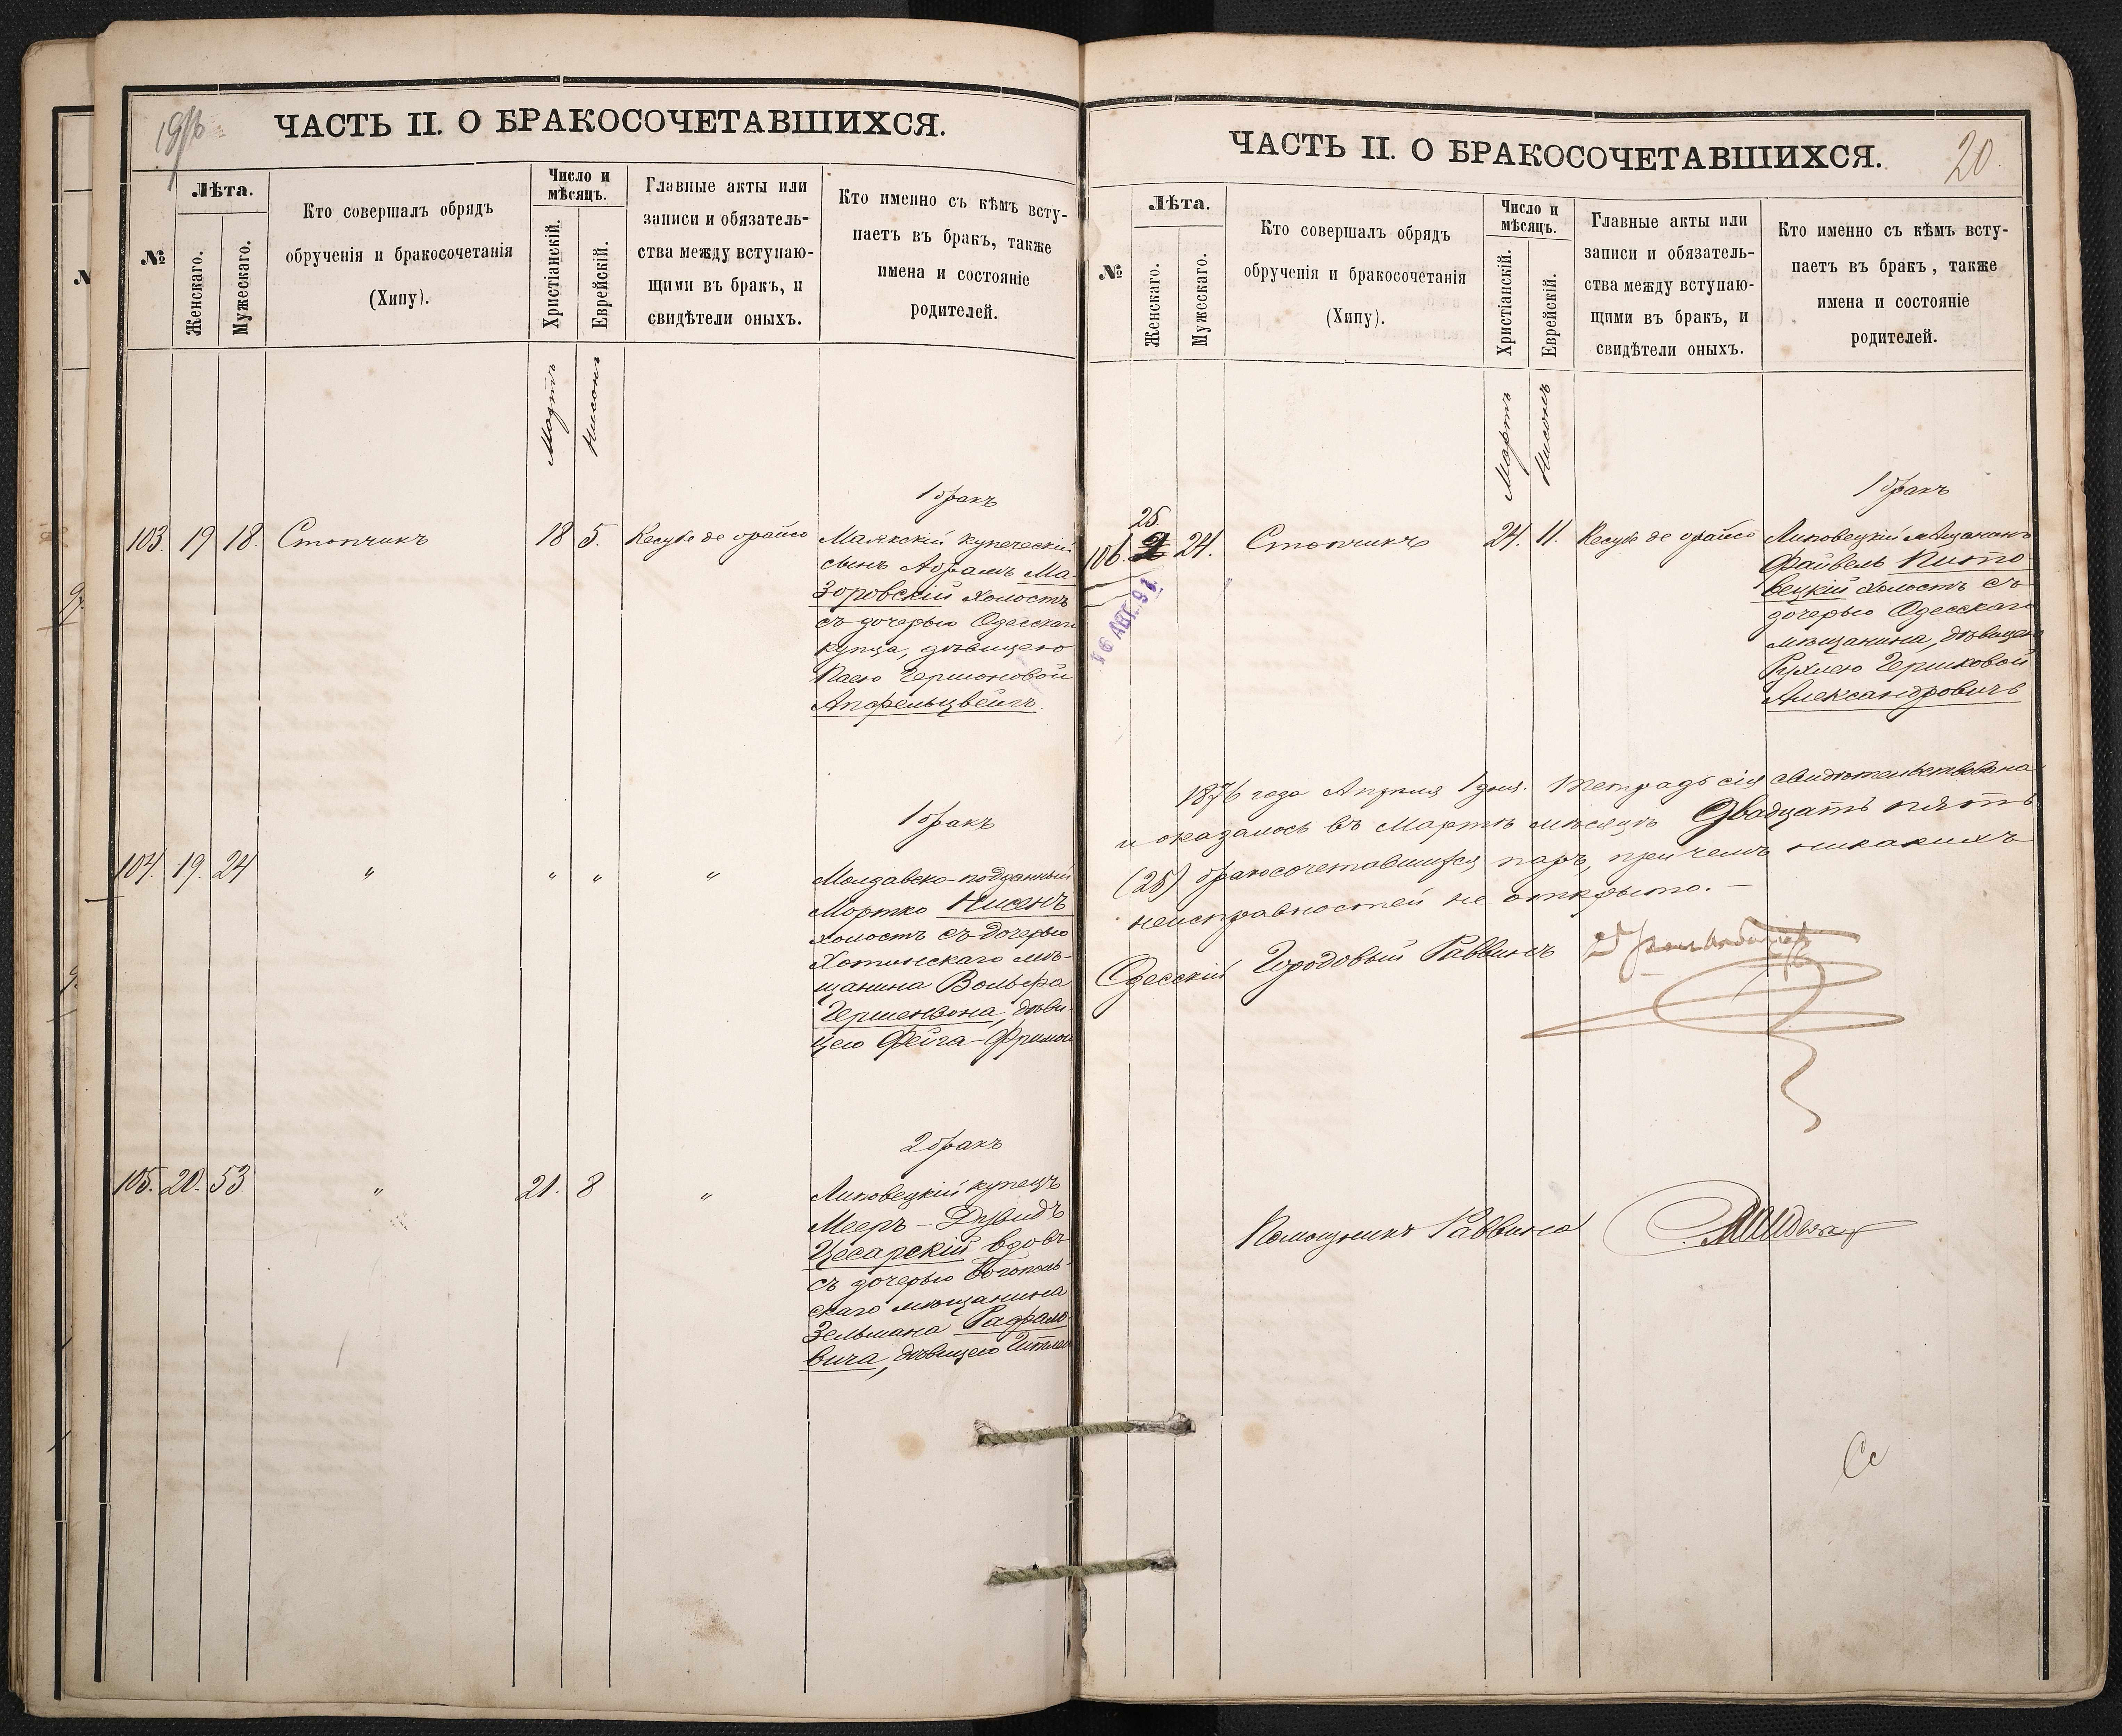 19/б
ЧАСТЬ II. О БРАКОСОЧЕТАВШИХСЯ.
№
Лѣта.
Женскаго.
Мужескаго.
Кто совершалъ обрядъ
обрученія и бракосочетанія
(Хипу).
Число и
мѣсяцъ.
Христіанскій.
Еврейскій.
Главные акты или
записи и обязатель-
ства между вступаю-
щими въ бракъ, и
свидѣтели оныхъ.
Кто именно съ кѣмъ всту-
паетъ въ бракъ, также
имена и состояніе
родителей.
Мартъ
Нисонъ
1 бракъ
103. 19 18. Стопчикъ 18 5. Кесубе де орайсо
Маякскій купеческій
сынъ Абрамъ Ма-
зоровскій холостъ
съ дочерью Одесскаго
купца, дѣвицею
Хаею Гершоновой
Апфельцвейгъ.
1 бракъ
104. 19. 24 " " " "
Молдавско-подданный
Мортко Нисенъ
холостъ съ дочерью
Хотинскаго мѣ-
щанина Вольфа
Гершензона, дѣви-
цею Фейга-Фримой
2 бракъ
105. 20. 53 " 21. 8 "
Липовецкій купецъ
Мееръ-Дувидъ
Цесарскій вдовъ
съ дочерью Богополь-
скаго мѣщанина
Зельмана Рафало-
вича, дѣвицею Гитлей
ЧАСТЬ II. О БРАКОСОЧЕТАВШИХСЯ.
20.
№
Лѣта.
Женскаго.
Мужескаго.
Кто совершалъ обрядъ
обрученія и бракосочетанія
(Хипу).
Число и
мѣсяцъ.
Христіанскій.
Еврейскій.
Главные акты или
записи и обязатель-
ства между вступаю-
щими въ бракъ, и
свидѣтели оныхъ.
Кто именно съ кѣмъ всту-
паетъ въ бракъ, также
имена и состояніе
родителей.
Мартъ
Нисонъ
1 бракъ
25.
106. 24. Стопчикъ 24. 11. Кесубе де орайсо
Липовецкій мѣщанинъ
Файвель Кито-
вецкій холостъ съ
дочерью Одесскаго
мѣщанина, дѣвицею
Рухлею Гершковой
Александровичъ
16 АВГ. 91
1876 года Апрѣля 1 дня. Тетрадь сія свидѣтельствована
и оказалось въ Мартѣ мѣсяцѣ Двадцать пять
(25) бракосочетавшихся паръ, при чемъ никакихъ
неисправностей не открыто. —
Одесскій Городовый Раввинъ
Помощникъ Раввина